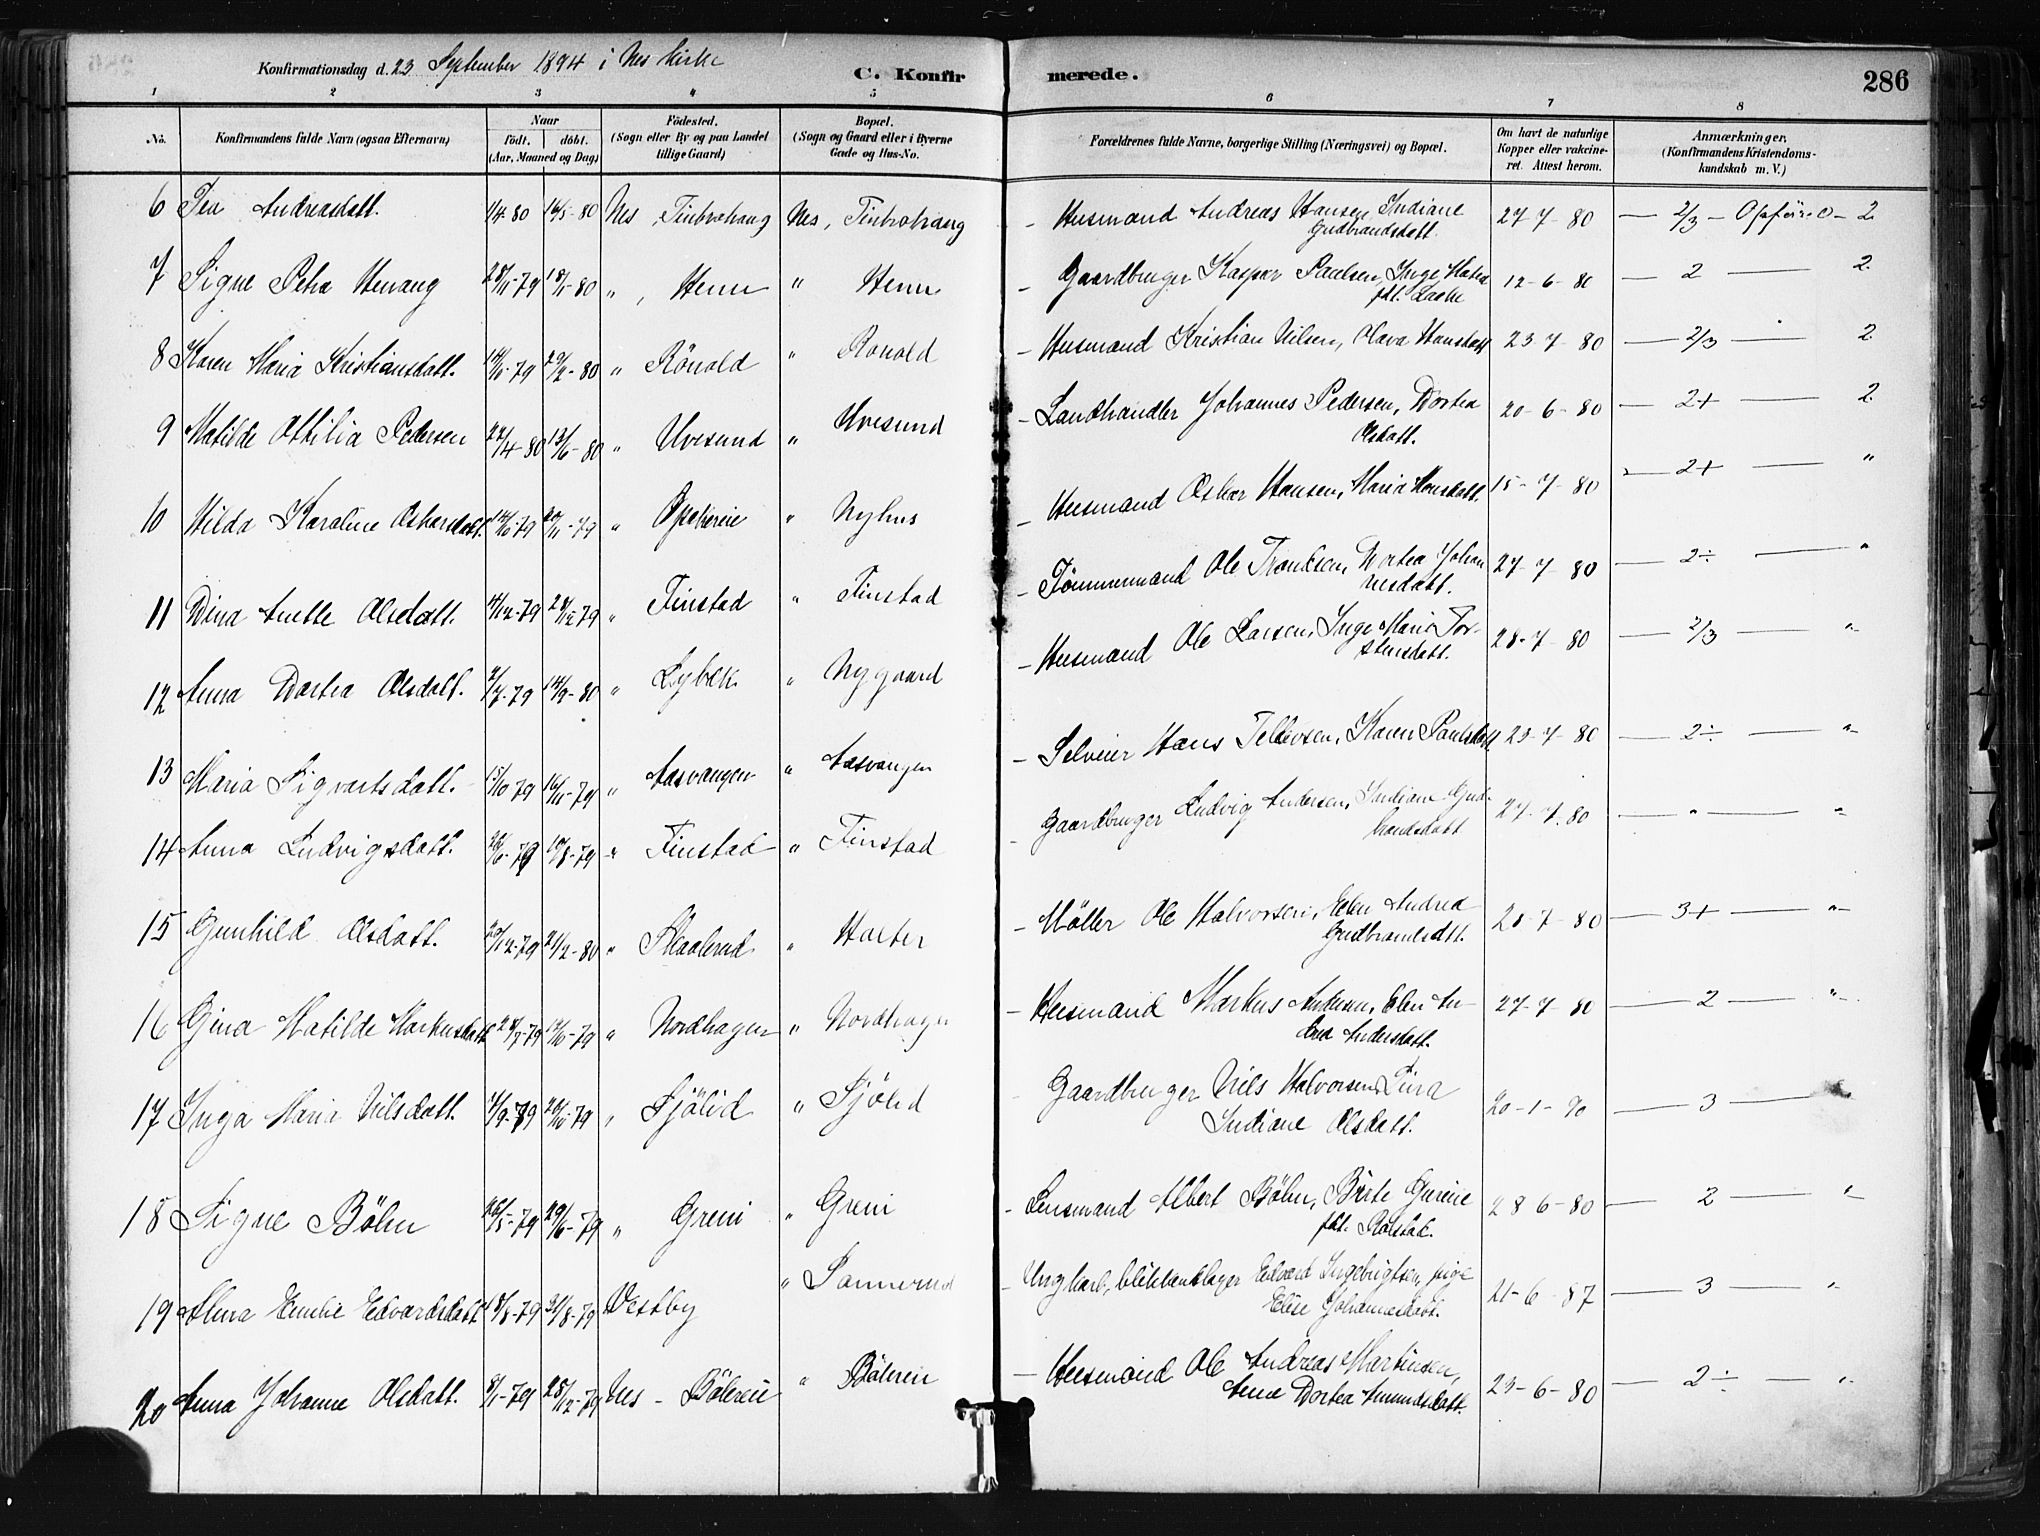 Konfirmationsdag d. 23 September 1894 i Nes Kirke
C. Konfirmerede.
286
1 2 3 4 5 6 7 8
No.
Konfirmandens fulde Navn (ogsaa Efternavn)
Naar
födt. döbt.
(Aar, Maaned og Dag)
Födested.
(Sogn eller By og paa Landet
tillige Gaard)
Bopæl.
(Sogn og Gaard eller i Byerne
Gade og Hus-No.
Forældrenes fulde Navne, borgerlige Stilling (Næringsvei) og Bopæl.
Om havt de naturlige
Kopper eller vakcine-
ret. Attest herom.
Anmærkninger,
(Konfirmandens Kristendoms-
kundskab m. V.)
6 Tea Andreasdatt. 1/4 80 16/5-80 Nes, Finbrohaug Nes, Finbrohaug - Husmand Andreas Hansen, Indiane 27-7-80 — 2/3 — 2
Gudbrandsdatt.
7 Signe Petra Henang 28/11-79 18/1-80 " , Henn " Henn - Gaardbruger Kasper Paulsen, Inge Maria 12-6-80 — 2 — 2
fdt.
8 Karen Maria Kristiansdatt. 14/11-79 29/2-80 " Rönold " Ronold - Husmand Kristian Nilsen, Olava Hansdatt 23-7-80 — 2/3 — 2
9 Matilde Othilia Pedersen 22/4-80 13/6-80 " Uvesund " Uvesund - Landhandler Johannes Pedersen, Dortea 20-6-80 — 2+ — 2
Olsdatt.
10 Hilda Karaline Oskarsdatt. 14/10-79 20/11-79 " " Nyhus - Husmand Oskar Hansen, Maria Hansdatt. 15-7-80 — 2+ — "
11 Dina Anette Olsdatt. 4/12-79 28/12-79 " Finstad " Finstad - Tömmermand Ole Trondsen, Dortea Johan 27-7-80 — 2÷ — "
nesdatt.
12 Anna Dortea Olsdatt. 2/7-79 14/9-80 " Lybæk " Nygaard - Husmand Ole Larsen, Inge Maria Tor- 28-7-80 — 2/3 — "
stensdatt.
13 Maria Sigvartsdatt. 15/10-79 16/11-79 " Aasvangen " Aasvangen - Selveier Hans Tellevsen, Karen Paulsdatt 23-7-80 — 2÷ — "
14 Anna Ludvigsdatt. 26/6-79 10/8-79 " Finstad " Finstad - Gaardbruger Ludvig Andersen, Indiane Gud- 27-7-80 — " — "
brandsdatt
15 Gunhild Olsdatt. 20/12-79 21/2-80 " Skaalerud " Holter - Möller Ole Halvorsen, Elen Andrea 28-7-80 — 3+ — "
Gudbrandsdtt.
16 Gina Matilde Markusdatt 28/7-79 12/10-79 " Nordhagen " Nordhagen - Husmand Markus Andersen, Elen An- 27-7-80 — 2 — "
drea Andersdatt.
17 Inga Maria Nilsdatt. 4/9-79 26/10-79 " Sjölid " Sjölid - Gaardbruger Nils Halvorsen, Tina 20-1-90 — 3 — "
Indiane Olsdatt.
18 Signe Böhn 26/5-79 29/6-79 " Greni " Greni - Lensmand Albert Böhn, Birte Gurine 28 6-80 — 2 — "
fdt. Rolstad.
19 Alma Emilie Edvardsdatt. 18/8-79 31/8-79 Vestby " Sannerud - Ungkarl, blikkenslager Edvard Ingebrigtsen, pige 21-6-87 — 3 — "
Elise Johannesdatt.
20 Anna Johanne Olsdatt. 8/11-79 28/12-79 Nes - Bölereie " Bölereie - Husmand Ole Andreas Martinsen, 23-6-80 — 2÷ — "
Anne Dortea Amundsdatt.